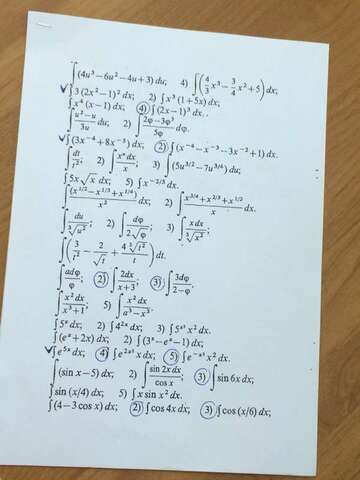 ∫(4u³−6u²−4u+3) du;  4) ∫(4/3 x³ − 3/4 x² + 5) dx;
∫3 (2x²−1)² dx;  2) ∫x³ (1+5x) dx;
∫x⁴ (x−1) dx;  4) ∫(2x−1)³ dx.
∫(u²−u)/(3u) du;  2) ∫(2φ−3φ³)/(5φ) dφ.
∫(3x⁻⁴+8x⁻⁵) dx;  2) ∫(x⁻⁴−x⁻³−3x⁻²+1) dx.
∫dt/t²;  2) ∫xⁿdx/x;  3) ∫(5u³ᐟ²−7u³ᐟ⁴) du;
∫5x√x dx;  5) ∫x⁻²ᐟ³ dx.
∫(x¹ᐟ²−x¹ᐟ³+x¹ᐟ⁴)/x² dx;  2) ∫(x³ᐟ⁴+x²ᐟ³+x¹ᐟ²)/x dx.
∫du/∛u²;  2) ∫dφ/√φ;  3) ∫x dx/∛x²;
∫(3/t² − 2/√t + 4∛t²/t) dt.
∫adφ/φ;  2) ∫2dx/(x+3);  3) ∫3dφ/(2−φ);
∫x²dx/(x³+1);  5) ∫x²dx/(a³−x³).
∫5ˣ dx;  2) ∫4²ˣ dx;  3) ∫5ˣ³ x² dx.
∫(eˣ+2x) dx;  2) ∫(3ˣ−eˣ−1) dx;
∫e⁵ˣ dx;  4) ∫e²ˣ² x dx;  5) ∫e⁻ˣ³ x² dx.
∫(sin x−5) dx;  2) ∫sin 2x dx/cos x;  3) ∫sin 6x dx;
∫sin (x/4) dx;  5) ∫x sin x² dx.
∫(4−3 cos x) dx;  2) ∫cos 4x dx;  3) ∫cos (x/6) dx;